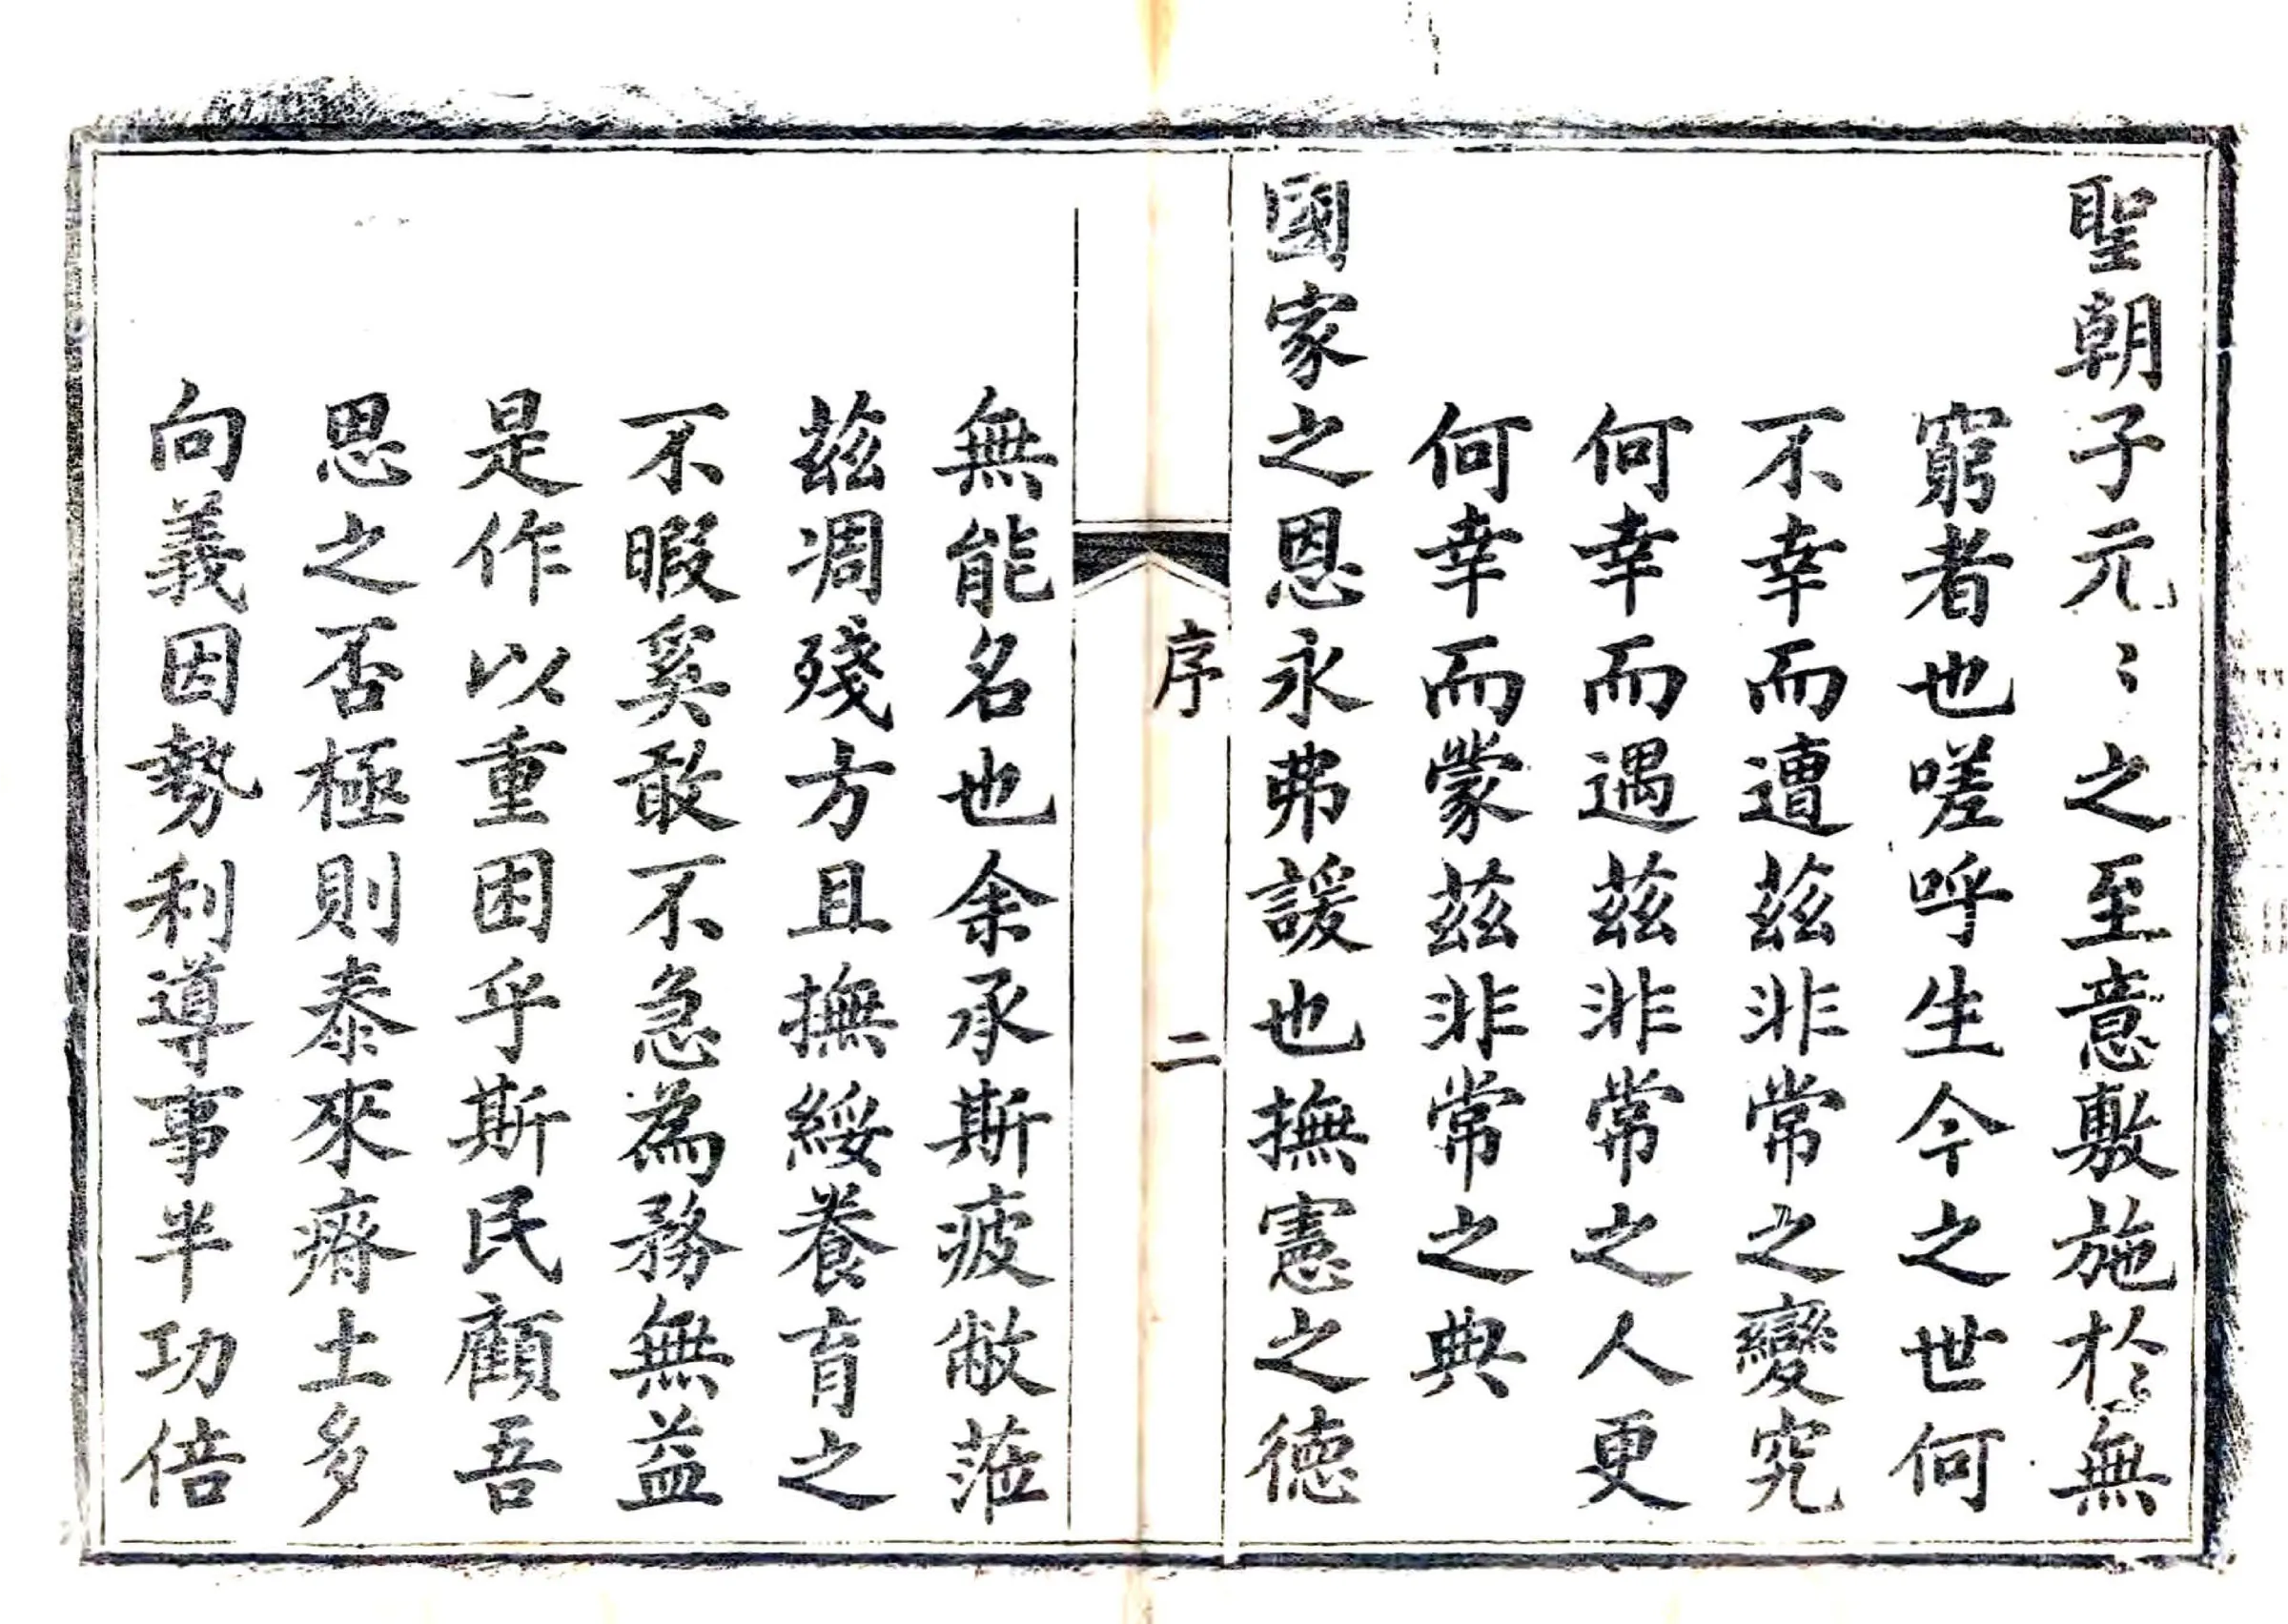 聖朝子元〻之至意敷施於無
窮者也嗟呼生今之世何
不幸而遭茲非常之變究
何幸而遇茲非常之人更
何幸而蒙茲非常之典
國家之恩永弗諼也撫憲之德
序
二
無能名也余承斯疲敝蒞
茲凋殘方且撫綏養育之
不暇奚敢不急為務無益
是作以重困乎斯民顧吾
思之否極則泰來瘠土多
向義因勢利導事半功倍